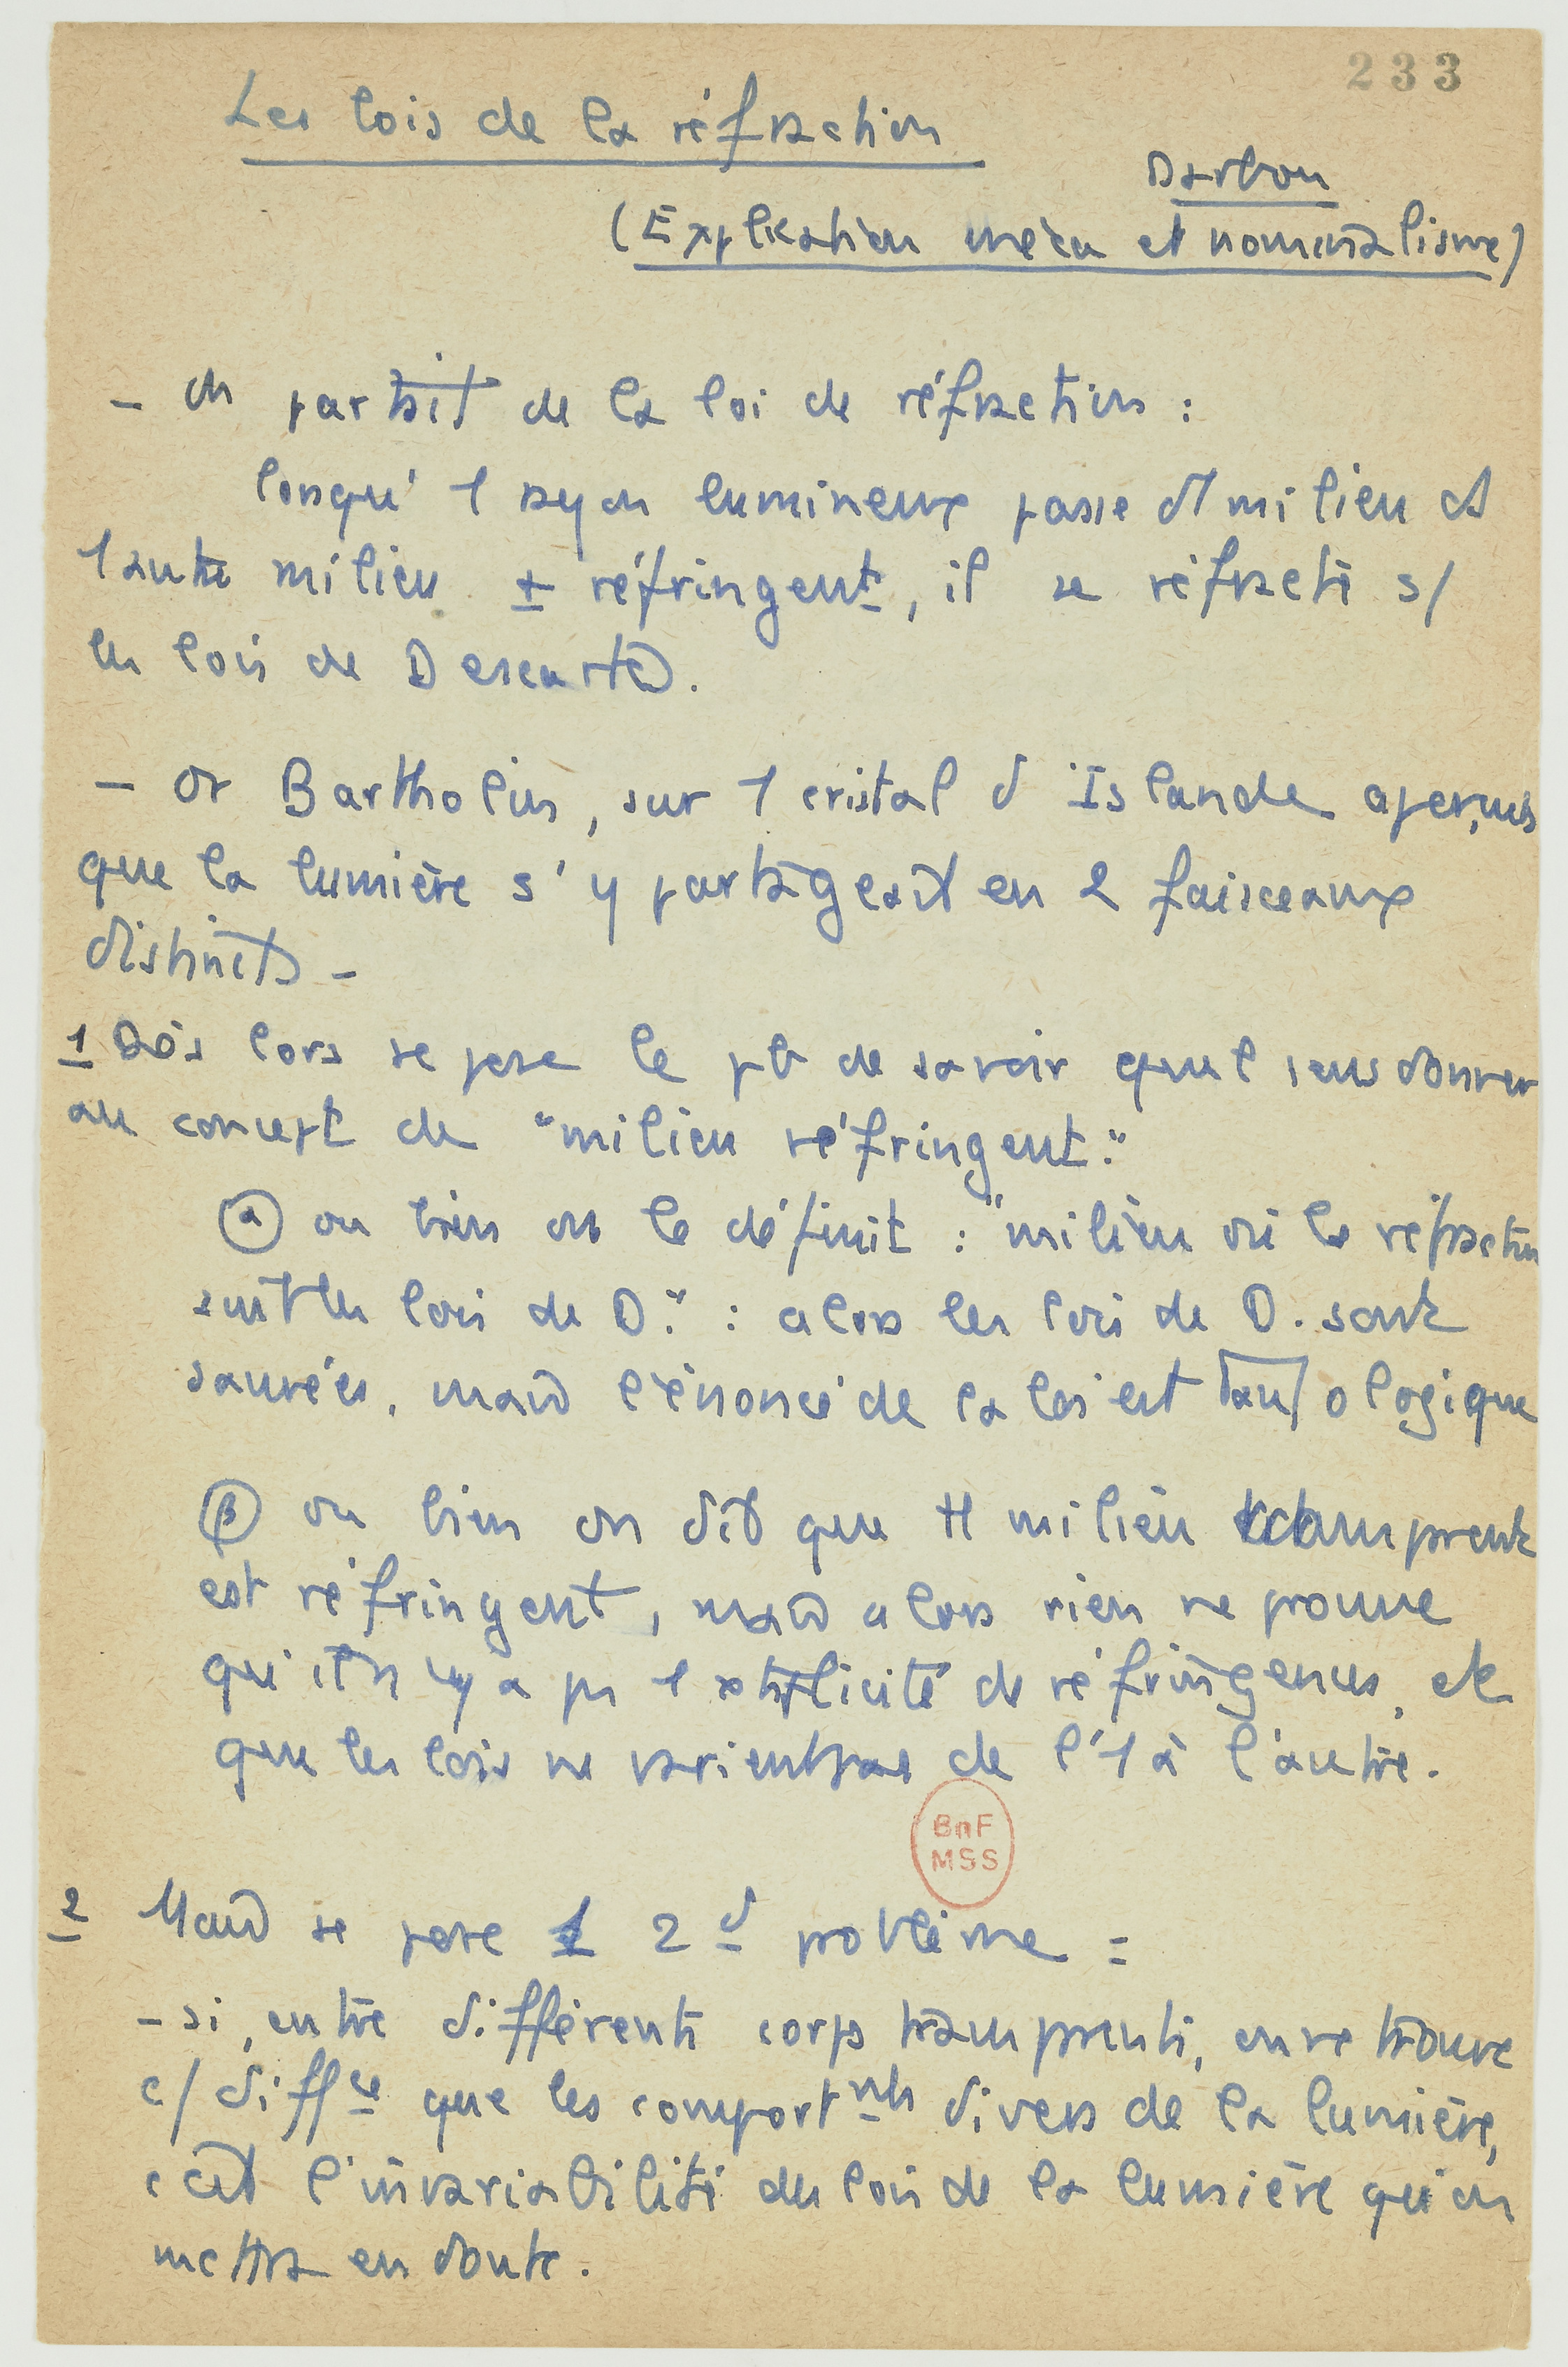 233
Les lois de la réfraction
Darbon
(Explication méca et nominalisme)
- on partait de la loi de réfraction :
lorsqu' 1 rayon lumineux passe d'1 milieu à
1 autre milieu ± réfringent, il se réfracte s/
les lois de Descartes.
- or Bartholin, sur 1 cristal d'Islande aperçut
que la lumière s'y partageait en 2 faisceaux
distincts -
1 Dès lors se pose le pb de savoir quel sens donner
au concept de "milieu réfringent."
α ou bien on le définit : "milieu où la réfraction
suit les lois de D." : alors les lois de D. sont
sauvées, mais l'énoncé de la loi est tautologique
β ou bien on dit que tt milieu transparent
est réfringent, mais alors rien ne prouve
qu'il n'y a pas 1 multiplicité de réfringences, et
que les lois ne varient pas de l'1 à l'autre.
BnF
MSS
2 Mais se pose 1 2d problème :
- si, entre différents corps transparents, on ne trouve
c/ diffce que les comportmts divers de la lumière,
c'est l'invariabilité des lois de la lumière qu'on
mettra en doute.